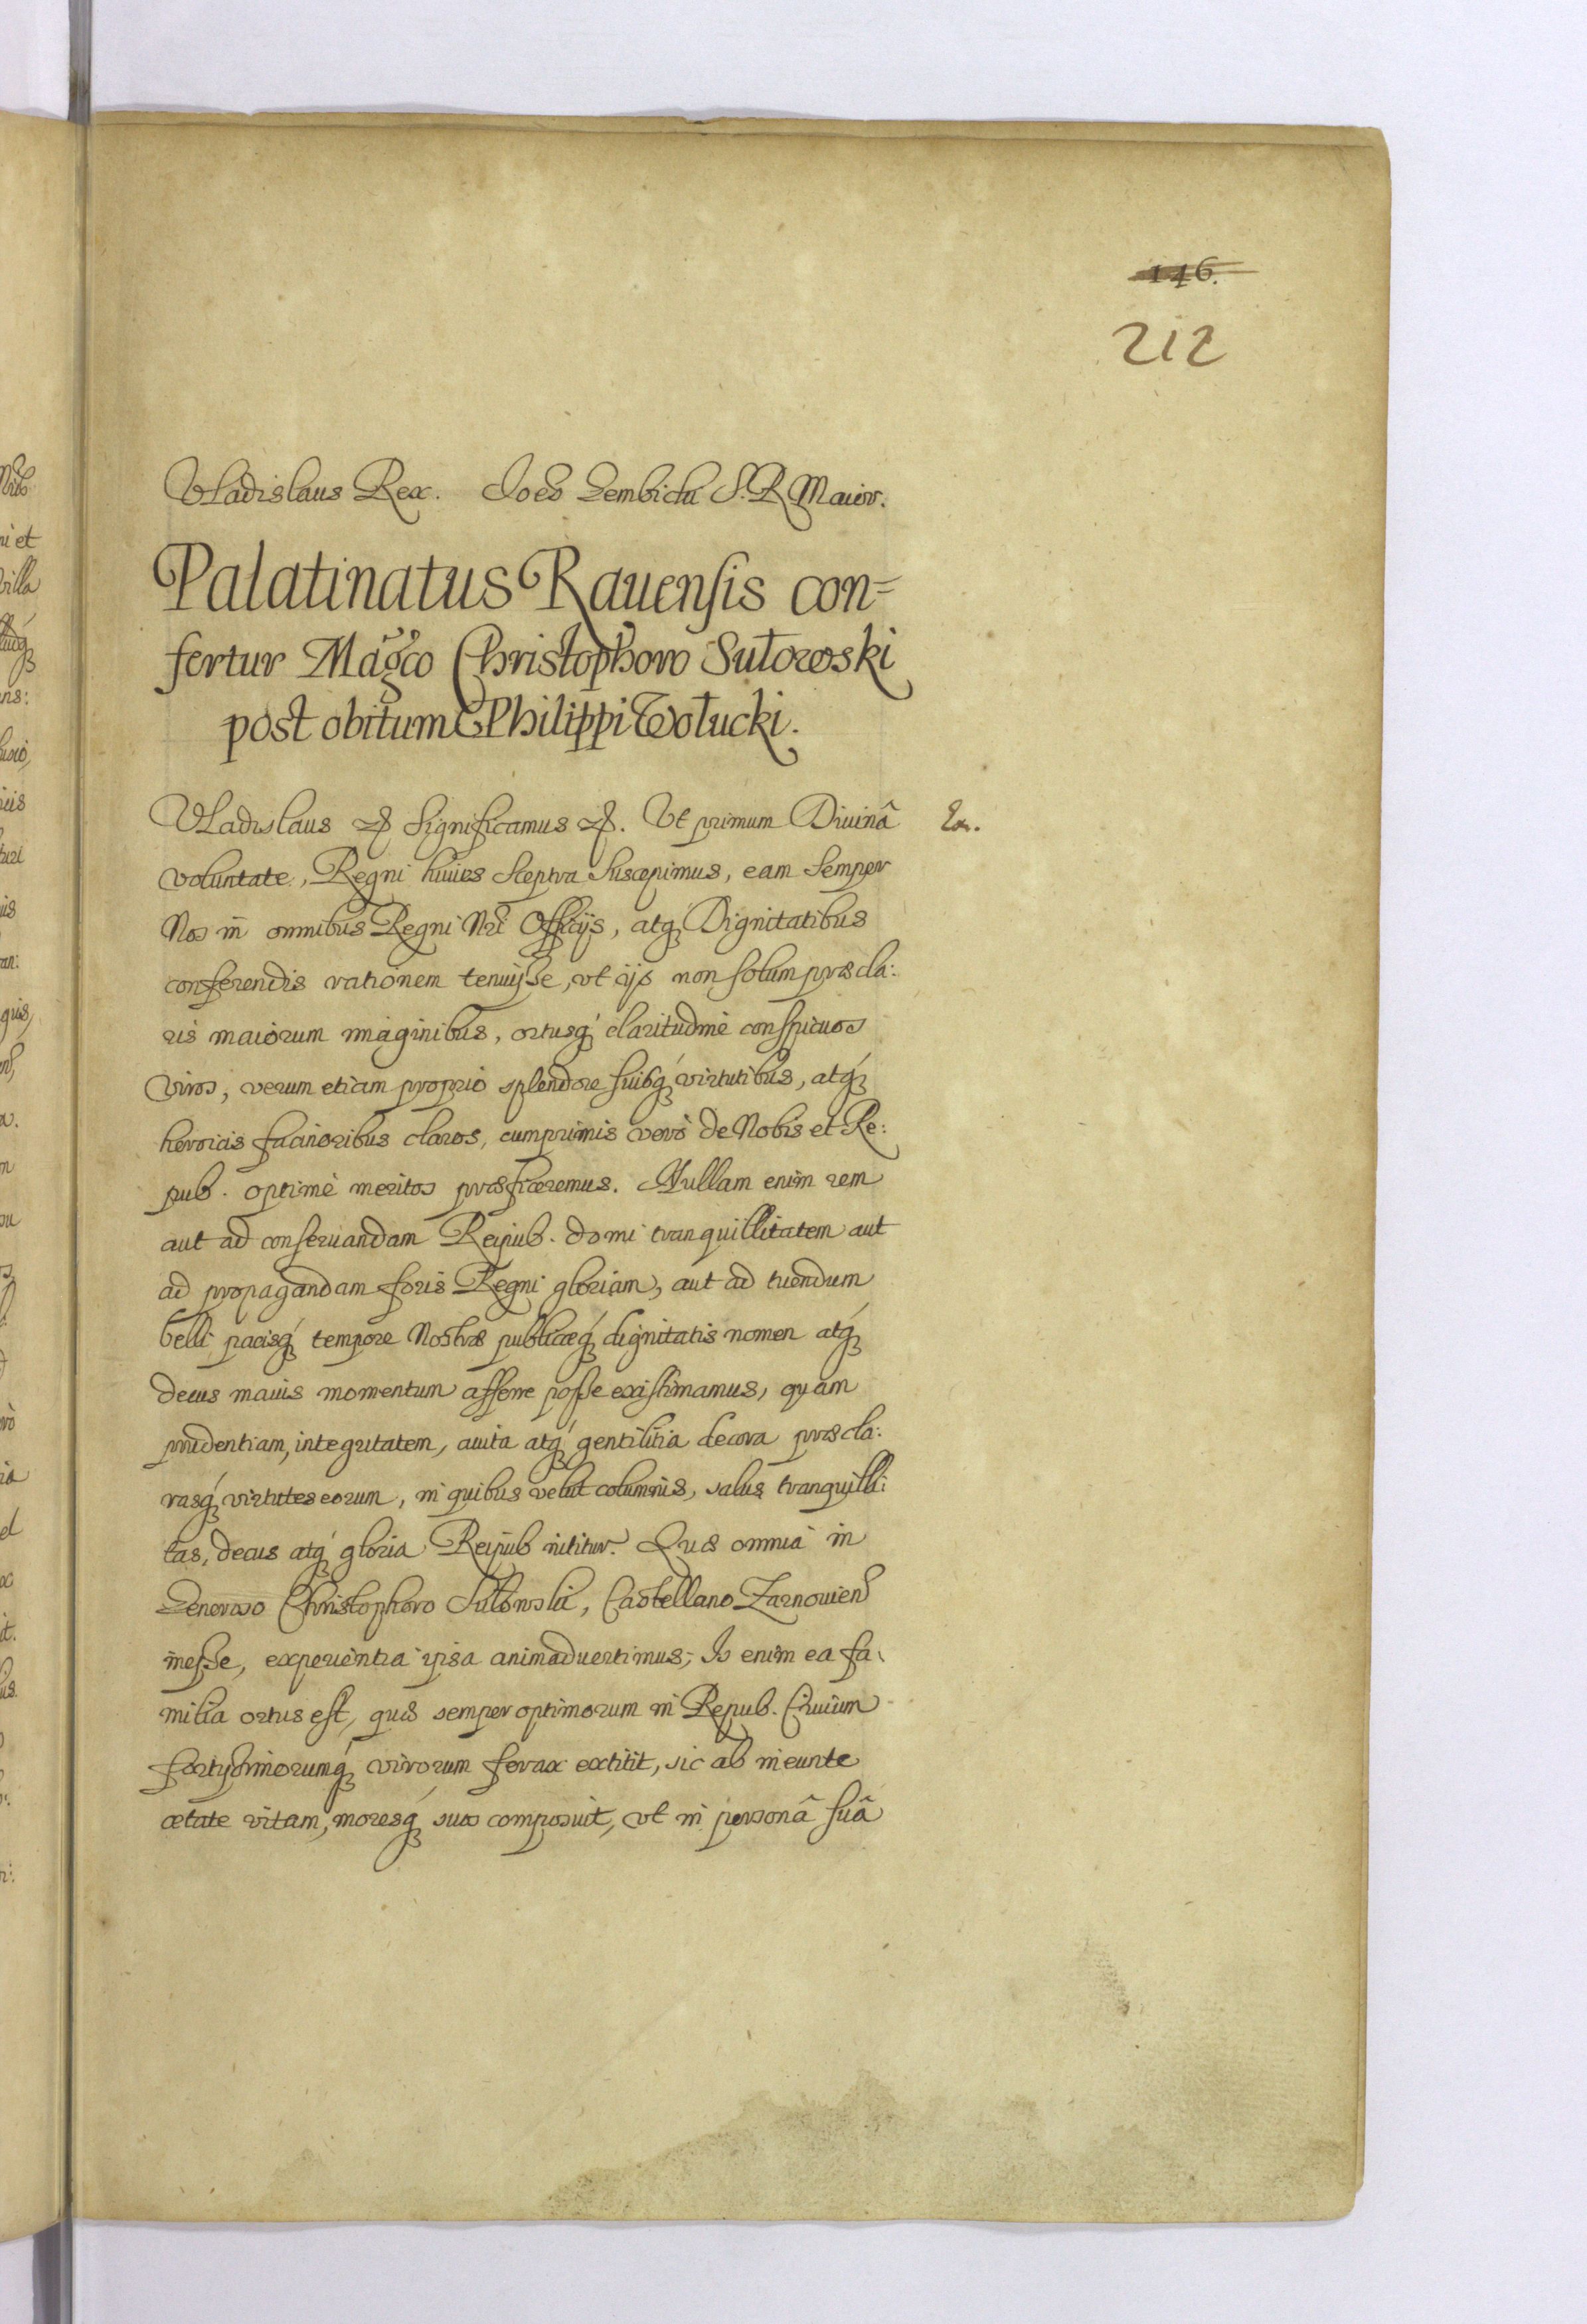 146.
212
Vladislaus Rex. Joes Gembicki S. R. Maior.
Palatinatus Rauensis con=
fertur Mag̃co Christophoro Sułowski
post obitum Philippi Wołucki.
Vladislaus etc. Significamus etc. Vt primum Diuinâ
voluntate, Regni huius Sceptra Suscepimus, eam Semper
Nos in omnibus Regni Nri Officijs, atq́ Dignitatibus
conferendis rationem tenuisse, vt ijs non solum præcla:
ris maiorum imaginibus, ortusq́ claritudine conspicuos
viros, verum etiam proprio splendore suisq́ virtutibus, atq́
heroicis facinoribus claros, cumprimis verò de Nobis et Re:
pub. optimè meritos præficeremus. Nullam enim rem
aut ad conseruandam Reipub. domi tranquillitatem aut
ad propagandam foris Regni gloriam, aut ad tuendum
belli pacisq́ tempore Nostræ publicæq́ dignitatis nomen atq́
decus maius momentum afferre posse existimamus, quam
prudentiam, integritatem, auita atq́ gentilitia decora præcla:
rasq́ virtutes eorum, in quibus velut columnis, salus tranquilli:
tas, decus atq́ gloria Reipub nititur. Quæ omnia in
Generoso Christophoro Sułowski, Castellano Zarnouien̄
inesse, experientia ipsa animaduertimus; Is enim ea fa:
milia ortus est, quæ semper optimorum in Repub. Ciuium
fortissimorumq́ virorum ferax extitit, sic ab ineunte
ætate vitam, moresq́ suos composuit, vt in personâ suâ